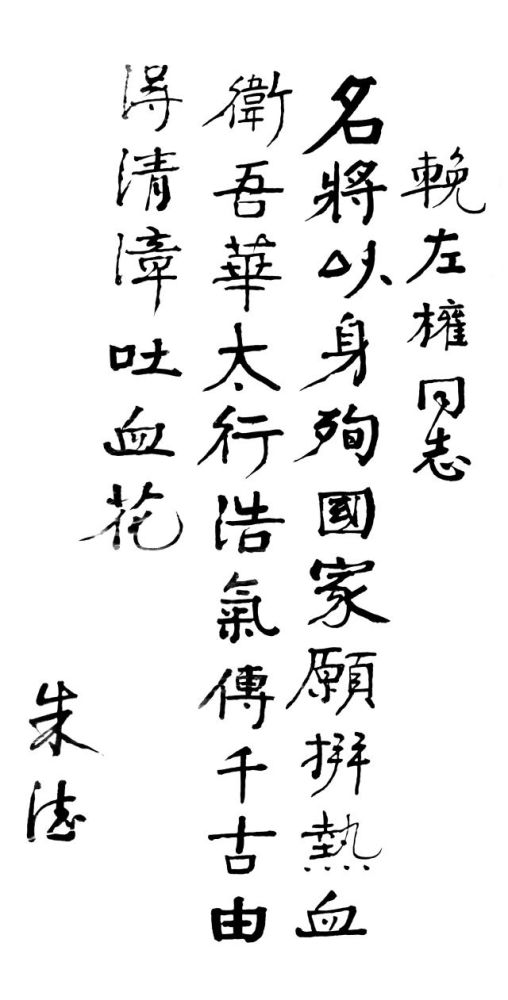 輓左權同志
名將以身殉國家願拼熱血
衛吾華太行浩氣傳千古由
得清漳吐血花
朱德